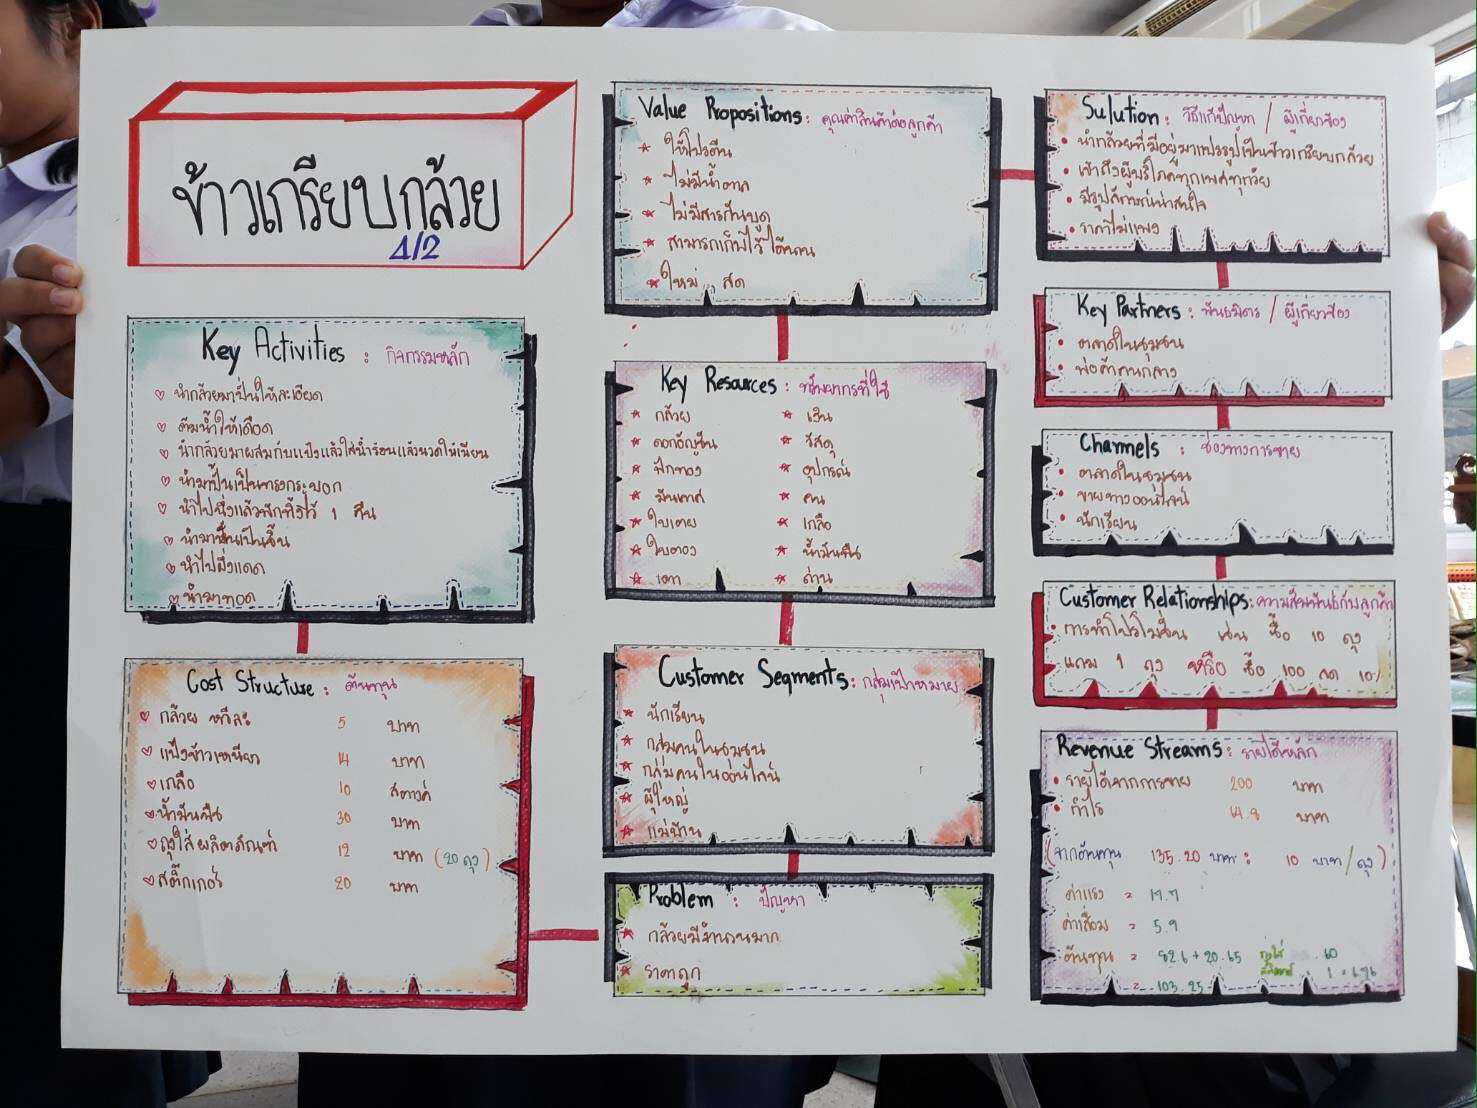 ข้าวเกรียบกล้วย
4/2
Key Activities : กิจกรรมหลัก
นำกล้วยมาปั่นให้ละเอียด
ต้มน้ำให้เดือด
นำกล้วยมาผสมกับแป้งแล้วใส่น้ำร้อนแล้วนวดให้เนียน
นำมาปั้นเป็นทรงกระบอก
นำไปนึ่งแล้วพักทิ้งไว้ 1 คืน
นำมาหั่นเป็นชิ้น
นำไปผึ่งแดด
นำมาทอด
Cost Structure : ต้นทุน
กล้วย หวีละ 5 บาท
แป้งข้าวเหนียว 14 บาท
เกลือ 10 สตางค์
น้ำมันพืช 30 บาท
ถุงใส่ผลิตภัณฑ์ 12 บาท (20 ถุง)
สติ๊กเกอร์ 20 บาท
Value Propositions : คุณค่าสินค้าต่อลูกค้า
ให้โปรตีน
ไม่มีน้ำตาล
ไม่มีสารกันบูด
สามารถเก็บไว้ได้นาน
ใหม่ สด
Key Resources : ทรัพยากรที่ใช้
กล้วย
ดอกอัญชัน
ฟักทอง
มันเทศ
ใบเตย
ใบตอง
เตา
เงิน
วัสดุ
อุปกรณ์
คน
เกลือ
น้ำมันพืช
ถ่าน
Customer Segments : กลุ่มเป้าหมาย
นักเรียน
กลุ่มคนในชุมชน
กลุ่มคนในออนไลน์
ผู้ใหญ่
แม่บ้าน
Problem : ปัญหา
กล้วยมีจำนวนมาก
ราคาถูก
Sulution : วิธีแก้ปัญหา / ผู้เกี่ยวข้อง
นำกล้วยที่มีอยู่มาแปรรูปเป็นข้าวเกรียบกล้วย
เข้าถึงผู้บริโภคทุกเพศทุกวัย
มีรูปลักษณ์น่าสนใจ
ราคาไม่แพง
Key Partners : พันธมิตร / ผู้เกี่ยวข้อง
ตลาดในชุมชน
พ่อค้าคนกลาง
Channels : ช่องทางการขาย
ตลาดในชุมชน
ขายทางออนไลน์
นักเรียน
Customer Relationships : ความสัมพันธ์กับลูกค้า
การทำโปรโมชั่น เช่น ซื้อ 10 ถุง
แถม 1 ถุง หรือ ซื้อ 100 ลด 10%
Revenue Streams : รายได้หลัก
รายได้จากการขาย 200 บาท
กำไร 64.8 บาท
(จากต้นทุน 135.20 บาท : 10 บาท/ถุง)
ค่าแรง = 17.7
ค่าเสื่อม = 5.9
ต้นทุน = 82.6 + 20.65
= 103.25